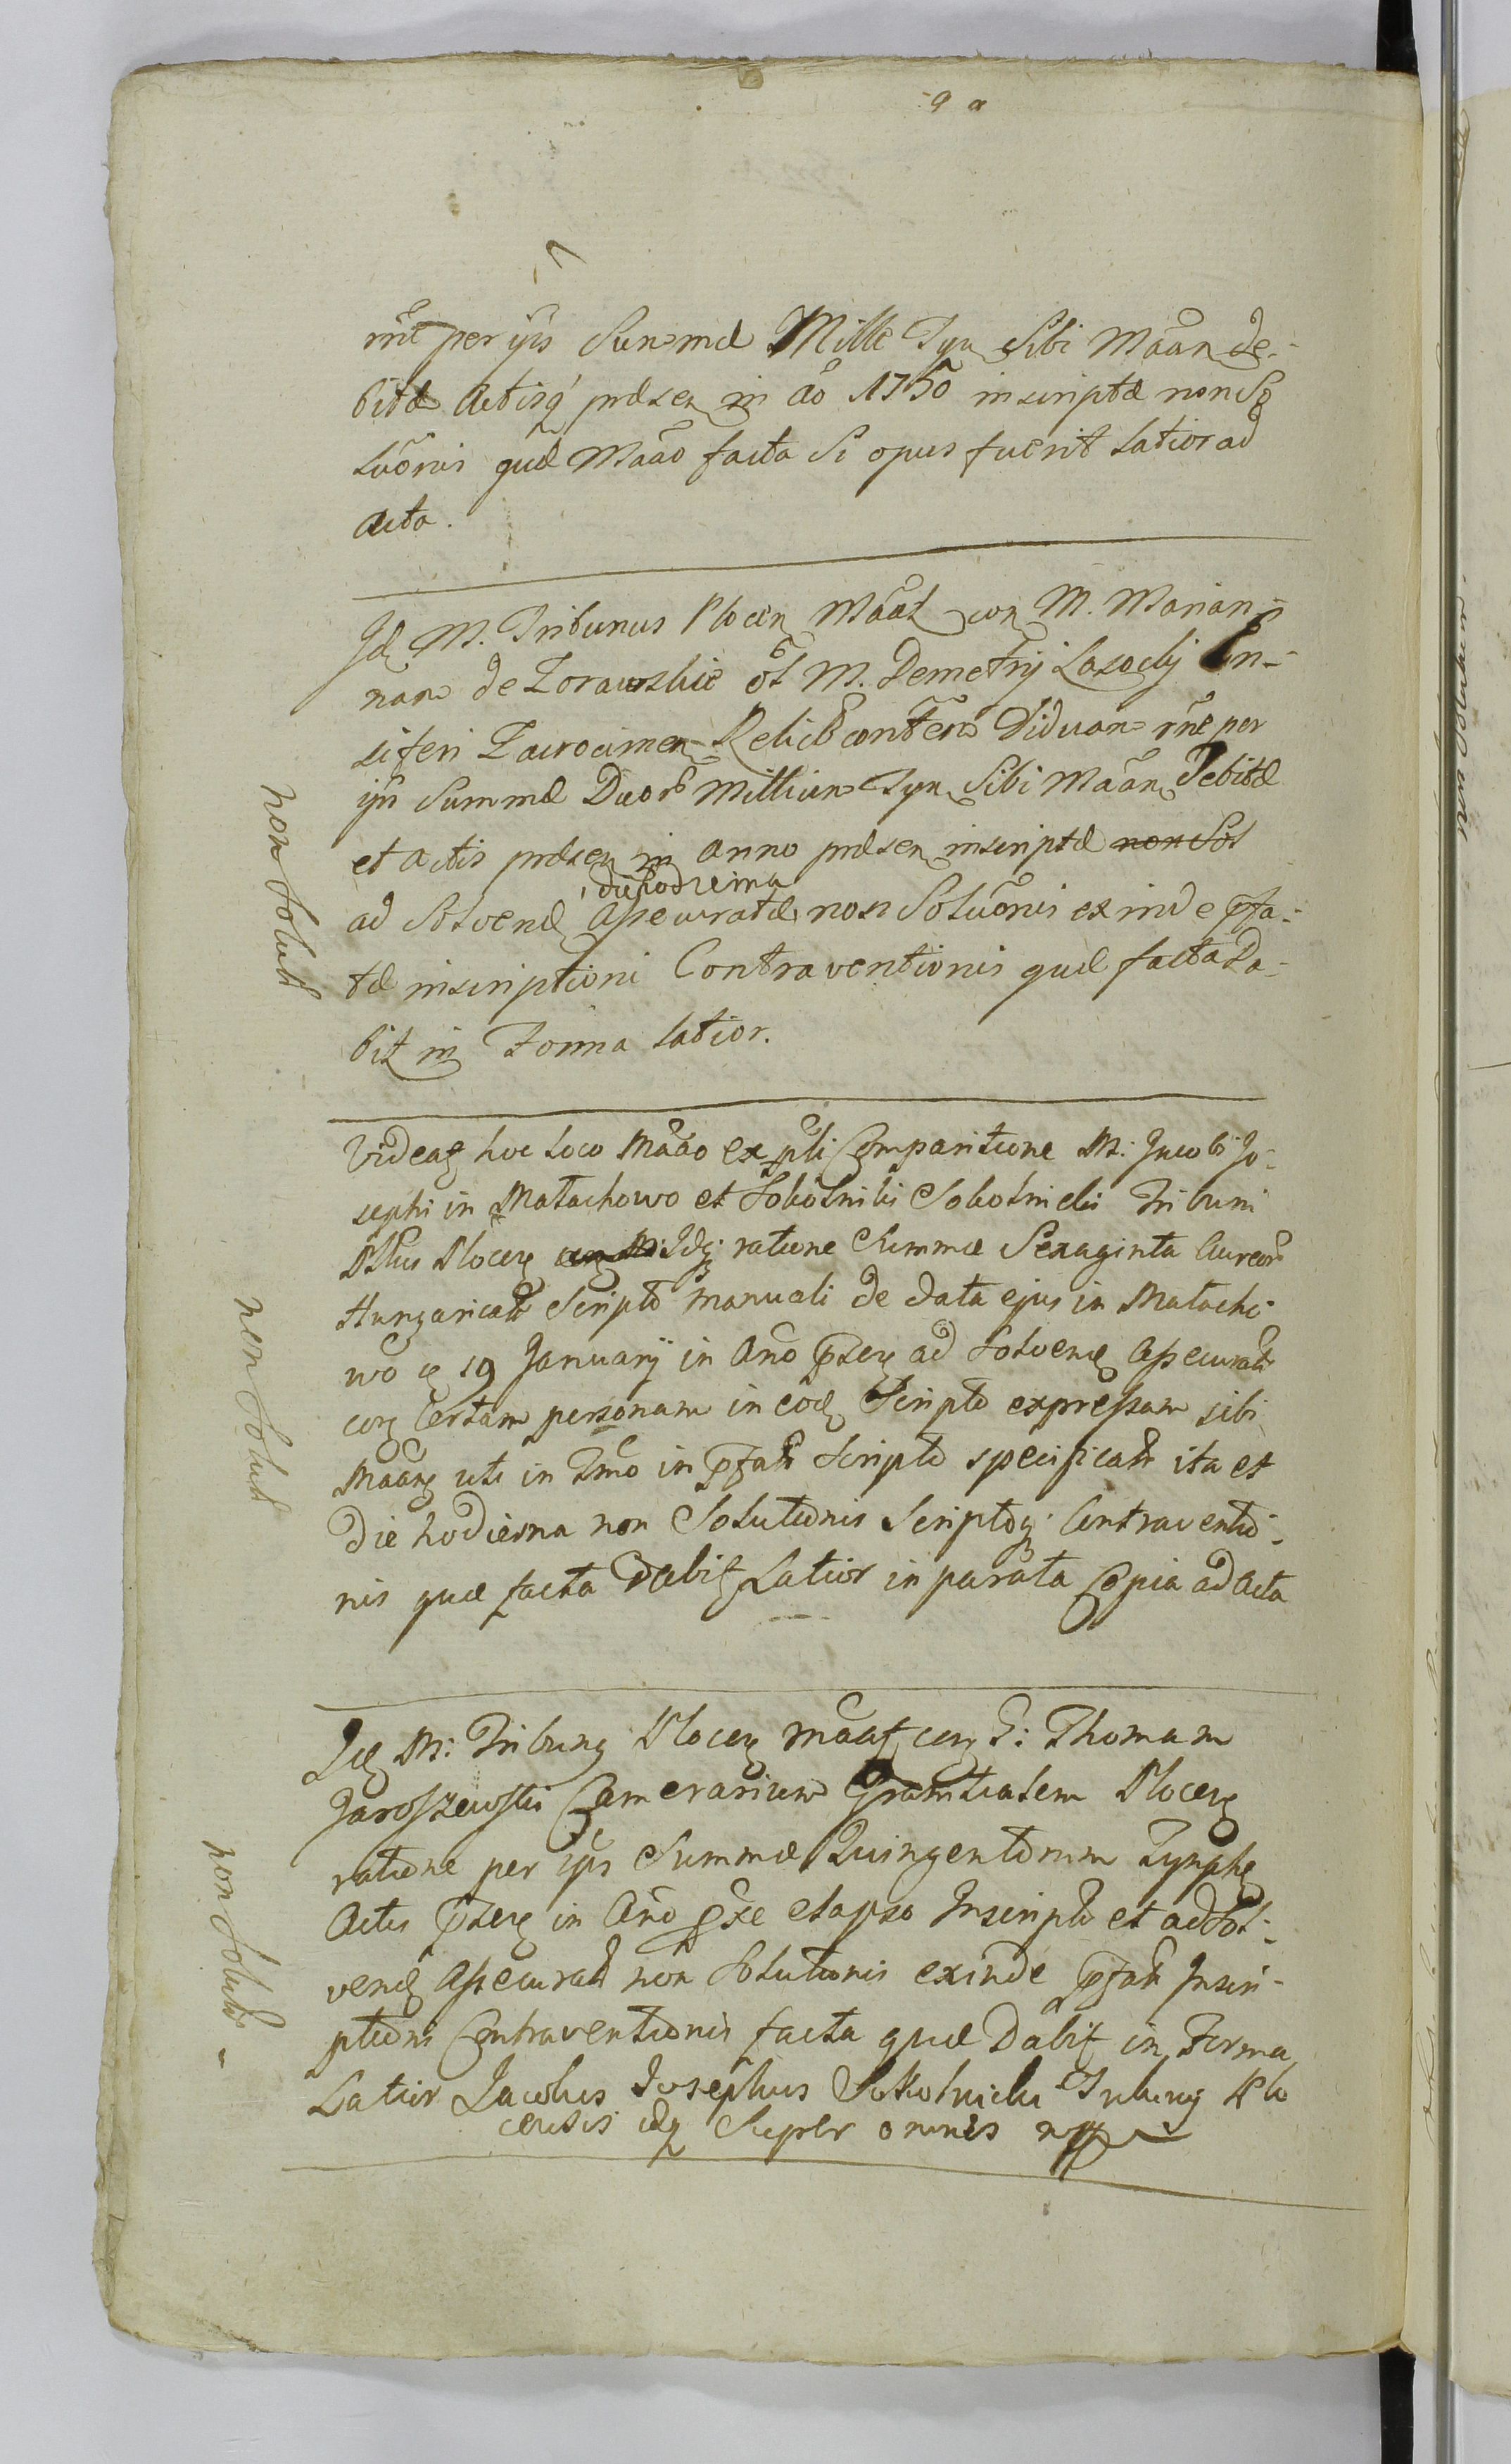 9 a
rñe per ips Summæ Mille Tyn Sibi Mãan de-
bitæ Actisq præsen in ão 1750 inscriptæ non So
lũonis quæ Mãao facta si opus fuerit latior ad
Acta.
Id M. Tribunus Plocen Mãat con M. Marian-
nam de Zorawskie ol M. Demetrij Lasocki En-
siferi Zacrocimen Relictã conten Viduam rñe per
ips Summæ Duor Millium Tyn Sibi Mãan Debitæ
et actis præsen in anno præsen inscriptæ non Sol
die hodierna
ad Solvend assecuratæ non Solũonis exinde pfa-
tæ inscriptioni Contraventionis quæ facta Da-
bit in Forma latior.
non Solut
Videat hoc loco Mãao ex pli Comparitione M: Jacobi Jo-
sephi in Małachowo et Sokolniki Sokolnicki Tribuni
Pltus Plocen con M: Idq ratione Summæ Sexaginta Aureor
Hungaricał Script manuali de data ejus in Małacho
wo d 19 January in Ano pzen ad Solvend assecurat
con Certam personam in eod Scripto expressam sibi
Mãan uti in Tmo in pfat Scripto specificat ita et
Die hodierna non Solutionis Scriptoq Contraventio-
nis quæ facta Dabit Latior in parata Copia ad Acta
non Solut
Id M: Tribung Plocen Mãat con G: Thomam
Jaroszewski Camerarium Granitialem Plocen
ratione per ips Summæ Quingentorum Tymphe
Actis pzen in Ano pxe elapso Inscript et ad Sol-
vend Assecurat non Solutionis exinde pfat Inscri-
ptioni Contraventionis facta quæ Dabit in Forma
Latior Jacobus Josephus Sokolnicki Tribung Plo
censis idq Super omnes mpp
non Solut